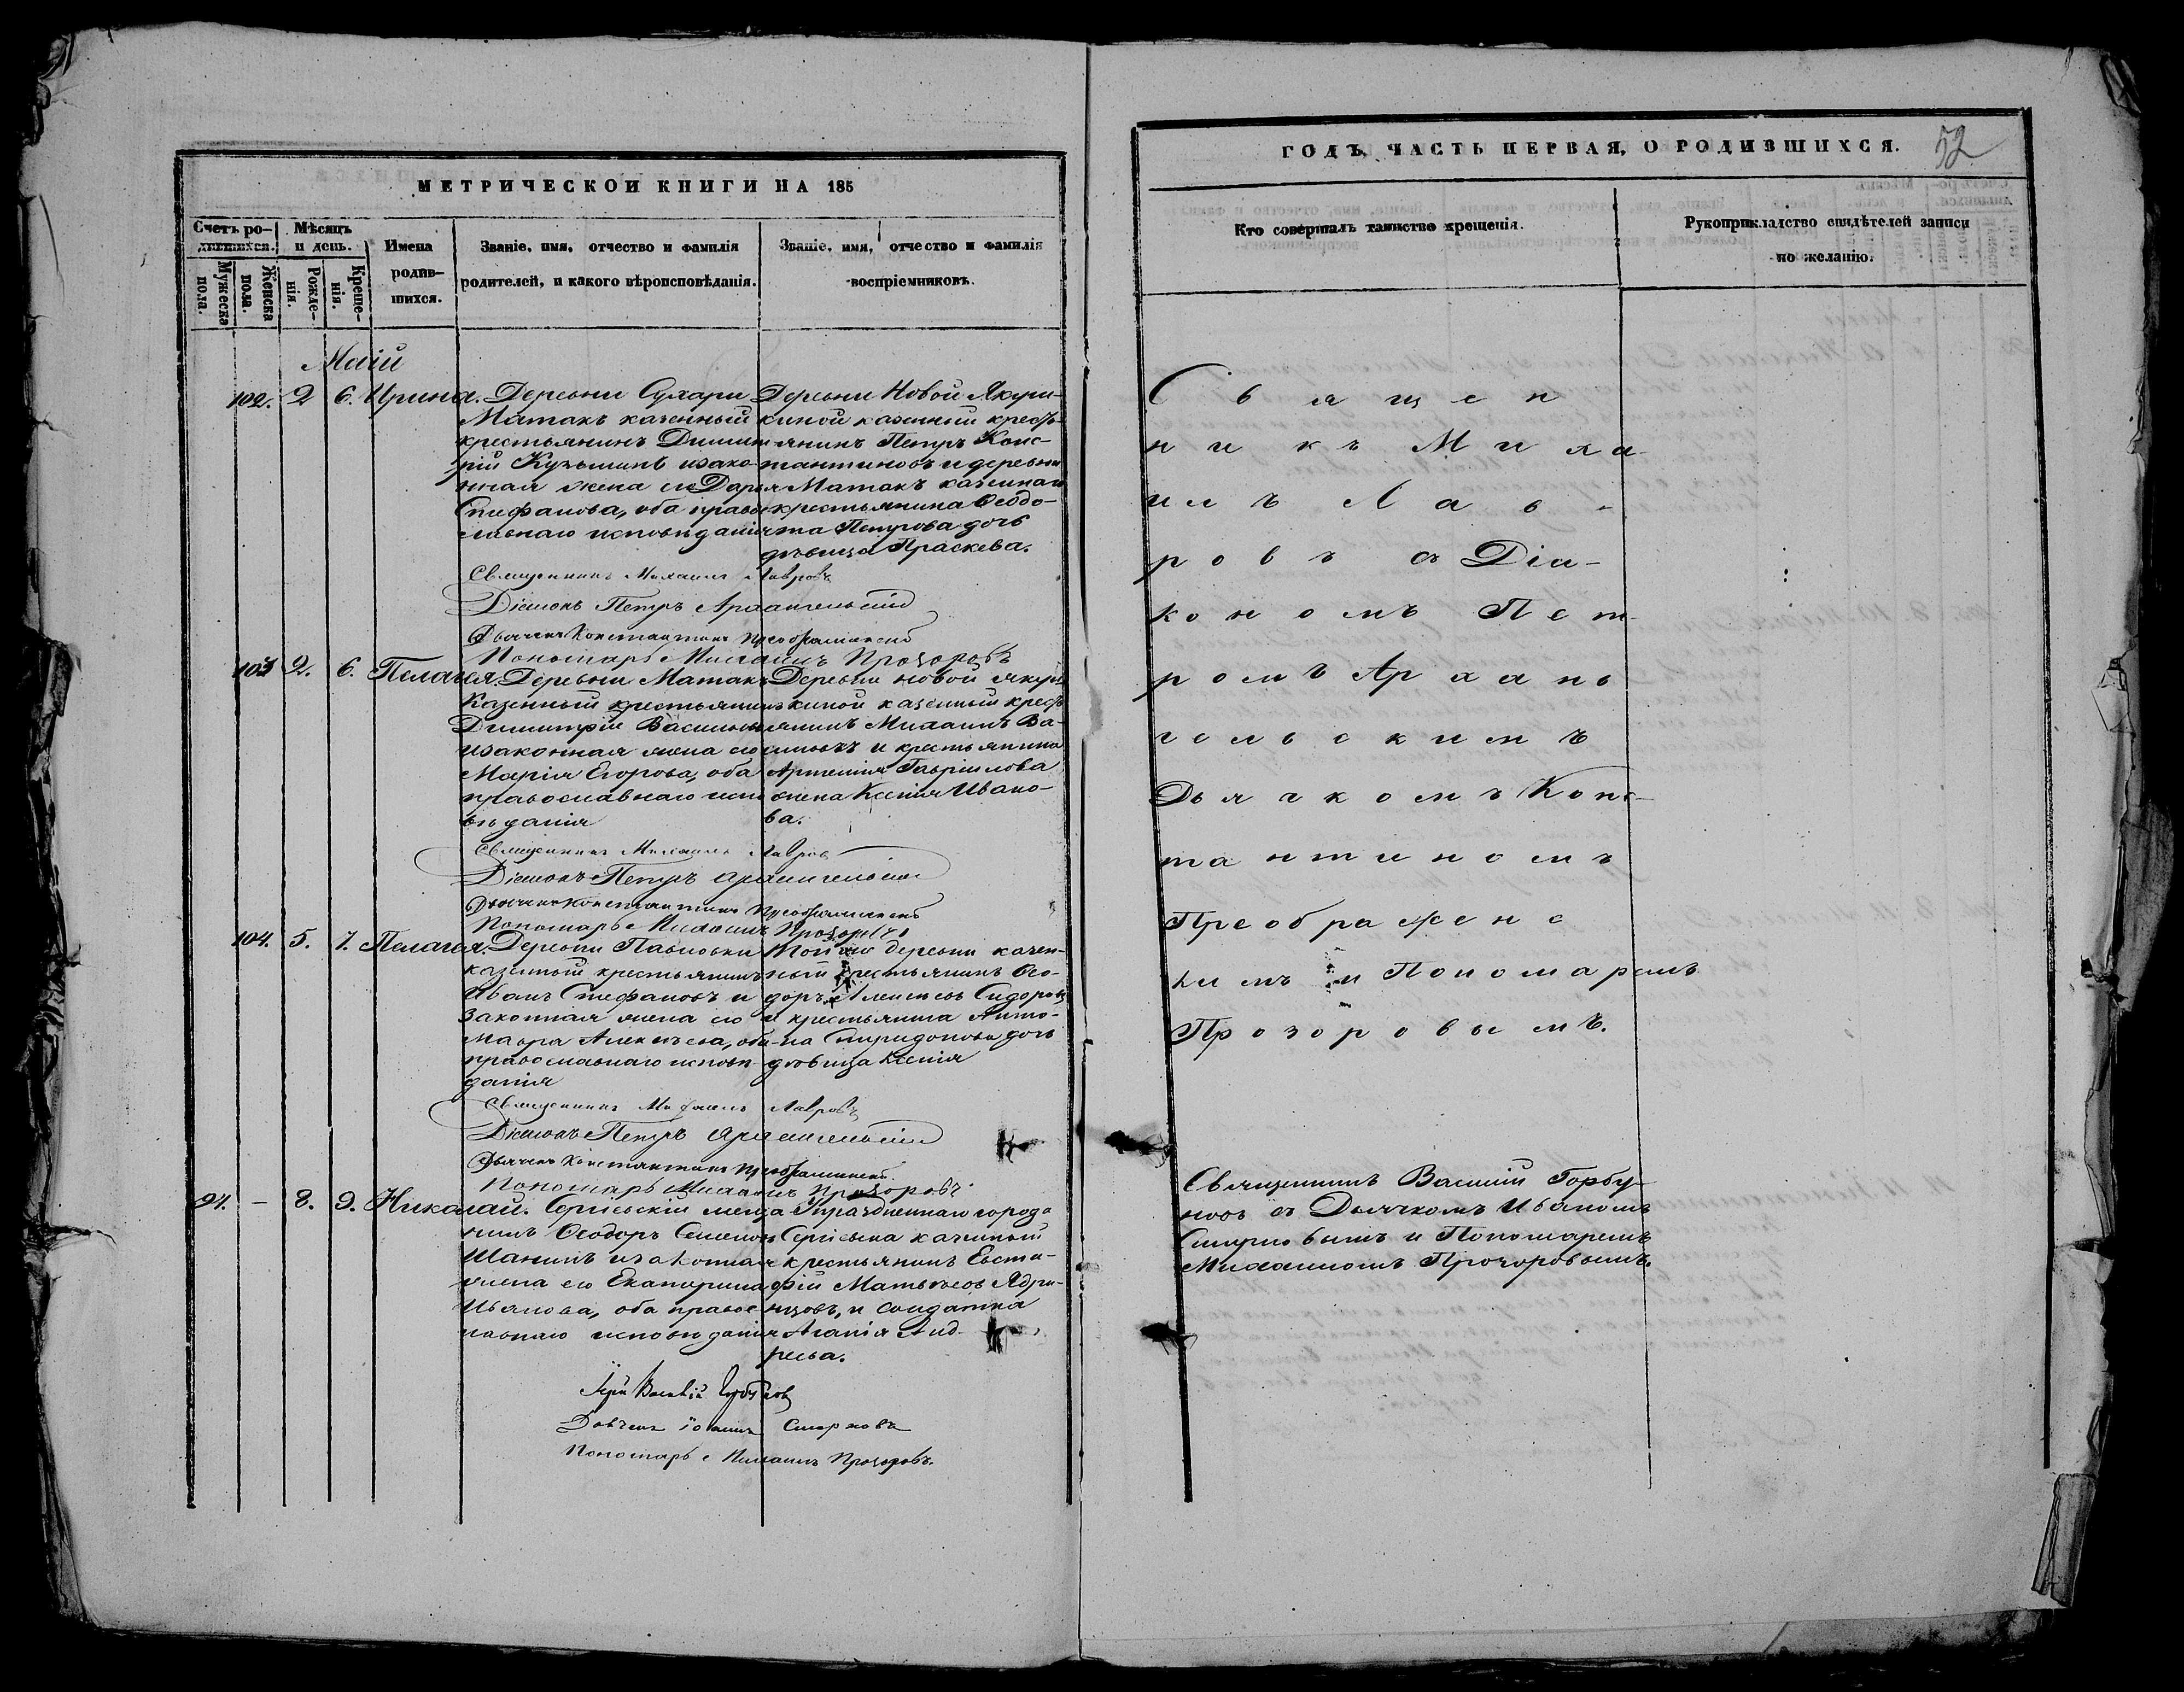 МЕТРИЧЕСКОЙ КНИГИ НА 185
Счетъ ро-
дившихся.
Мужеска
пола.
Женска
пола.
Мѣсяцъ
и день.
Рожде-
нія.
Креще-
нія.
Имена
родив-
шихся.
Званіе, имя, отчество и фамилія
родителей, и какого вѣроисповѣданія.
Званіе, имя, отчество и фамилія
воспріемниковъ.
Маій
102. 2 6. Ирина.
Деревни Сухари
Матакъ казенный
крестьянинъ Димит-
рій Кузьминъ изако-
нная жена его Дарья
Стефанова, оба право-
славнаго исповѣданія
Деревни Новой Якуш-
киной казенный кресть-
янинъ Петръ Конс-
тантиновъ и деревни
Матакъ казеннаго
крестьянина Ѳеодо-
та Петрова дочь
дѣвица Праскева.
Священникъ Михаилъ Лавровъ
Діаконъ Петръ Архангельскій
Дьячекъ Константинъ Преображенскій
Пономарь Михаилъ Прозоровъ
103 2. 6. Пелагея.
Деревни Матакъ
Казенный крестьянинъ
Димитрій Васильевъ
изаконная жена его
Марія Егорова, оба
православнаго испо-
вѣданія
Деревни новой якуш-
киной казенный кресть-
янинъ Михаилъ Ва-
сильевъ и крестьянина
Артемія Гаврилова
жена Ксенія Ивано-
ва.
Священникъ Михаилъ Лавровъ
Діаконъ Петръ Архангельскій
Дьячекъ Константинъ Преображенскій
Пономарь Михаилъ Прозоровъ
104. 5. 7. Пелагея.
Деревни Павловки
казенный крестьянинъ
Иванъ Стефановъ и
Законная жена его
Мавра Алексѣева, оба
православнаго исповѣ-
данія
Той же деревни казен-
ный крестьянинъ Ѳео-
доръ Алексѣевъ Сидоровъ
и крестьянина Анто-
на Спиридонова дочь
дѣвица Ксенія
Священникъ Михаилъ Лавровъ
Діаконъ Петръ Архангельскій
Дьячекъ Константинъ Преображенскій.
Пономарь Михаилъ Прозоровъ
94. - 8. 9. Николай.
Сергіевскій меща-
нинъ Ѳеодоръ Семеновъ
Шанинъ изаконная
жена его Екатерина
Иванова, оба правос-
лавнаго исповѣданія
Упраздненнаго города
Сергіевска казенный
крестьянинъ Евста-
фій Матвѣевъ Ядри-
нцовъ, и солдатка
Агапія Анд-
реева.
Іерей Василій Горбуновъ
Дьячекъ Іоаннъ Смирновъ
Пономарь Михаилъ Прозоровъ.
ГОДЪ, ЧАСТЬ ПЕРВАЯ, О РОДИВШИХСЯ.
52
Кто совершалъ таинство крещенія.
Рукоприкладство свидѣтелей записи
по желанію.
Священ
никъ Миха-
илъ Лав-
ровъ съ Діа-
кономъ Пет-
ромъАрхан-
гельскимъ
Дьячкомъ Конс-
тантиномъ
Преображенс
кимъ и Пономаремъ
Прозоровымъ.
Священникъ Василій Горбу-
новъ съ Дьячкомъ Иваномъ
Смирновымъ и Пономаремъ
Михаиломъ Прозоровымъ.